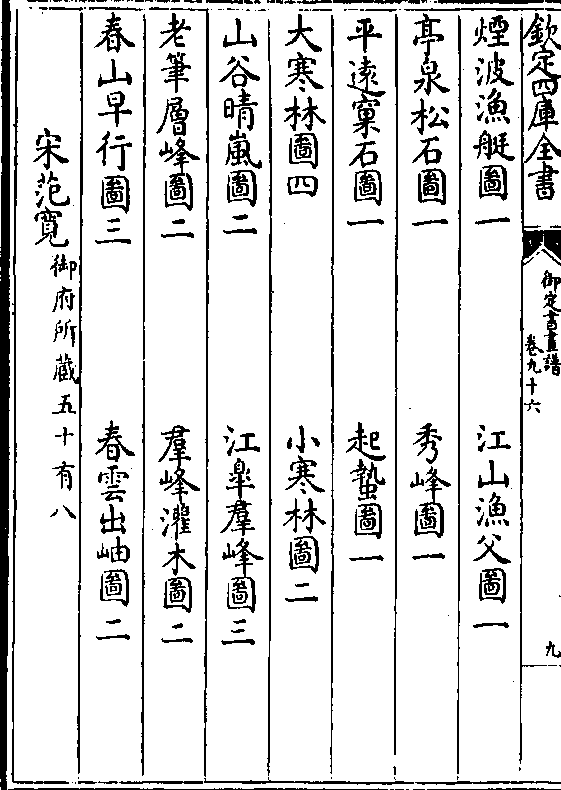 欽定四庫全書
御定書畫譜
卷九十六
九
煙波漁艇圖一　江山漁父圖一
亭泉松石圖一　秀峰圖一
平遠窠石圖一　起蟄圖一
大寒林圖四　小寒林圖二
山谷晴嵐圖二　江臯羣峰圖三
老筆層峰圖二　羣峰灌木圖二
春山早行圖三　春雲出岫圖二
宋范寛御府所藏五十有八